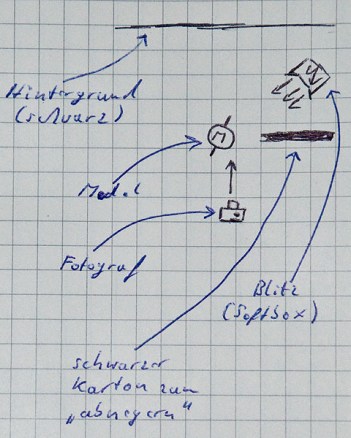 Hintergrund
(schwarz)
M
Model
Fotograf
Blitz
(Softbox)
schwarzer
Karton zum
„abnegern“